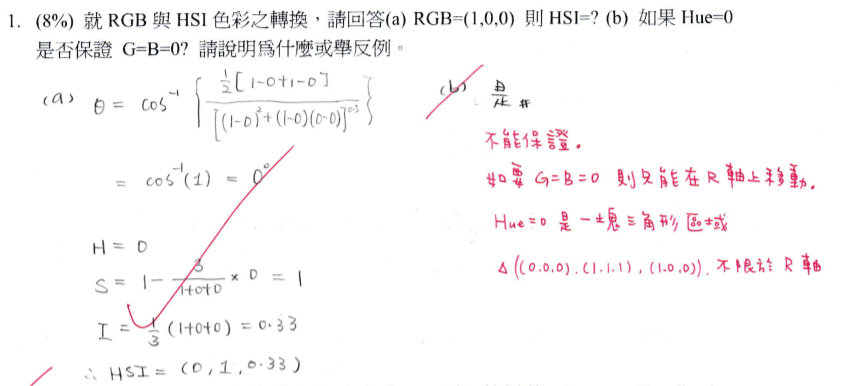 1. (8%) 就 RGB 與 HSI 色彩之轉換，請回答(a) RGB=(1,0,0) 則 HSI=? (b) 如果 Hue=0
是否保證 G=B=0? 請說明為什麼或舉反例。
(a) θ = cos⁻¹ { ½[1-0+1-0] / [(1-0)²+(1-0)(0-0)]^0.5 }
= cos⁻¹(1) = 0°
H = 0
S = 1 - 3/(1+0+0) × 0 = 1
I = 1/3 (1+0+0) = 0.33
∴ HSI = (0, 1, 0.33)
(b) 是 #
不能保證。
如要 G=B=0 則只能在 R 軸上移動。
Hue=0 是一塊三角形區域
△((0.0.0), (1.1.1), (1.0.0)). 不限於 R 軸